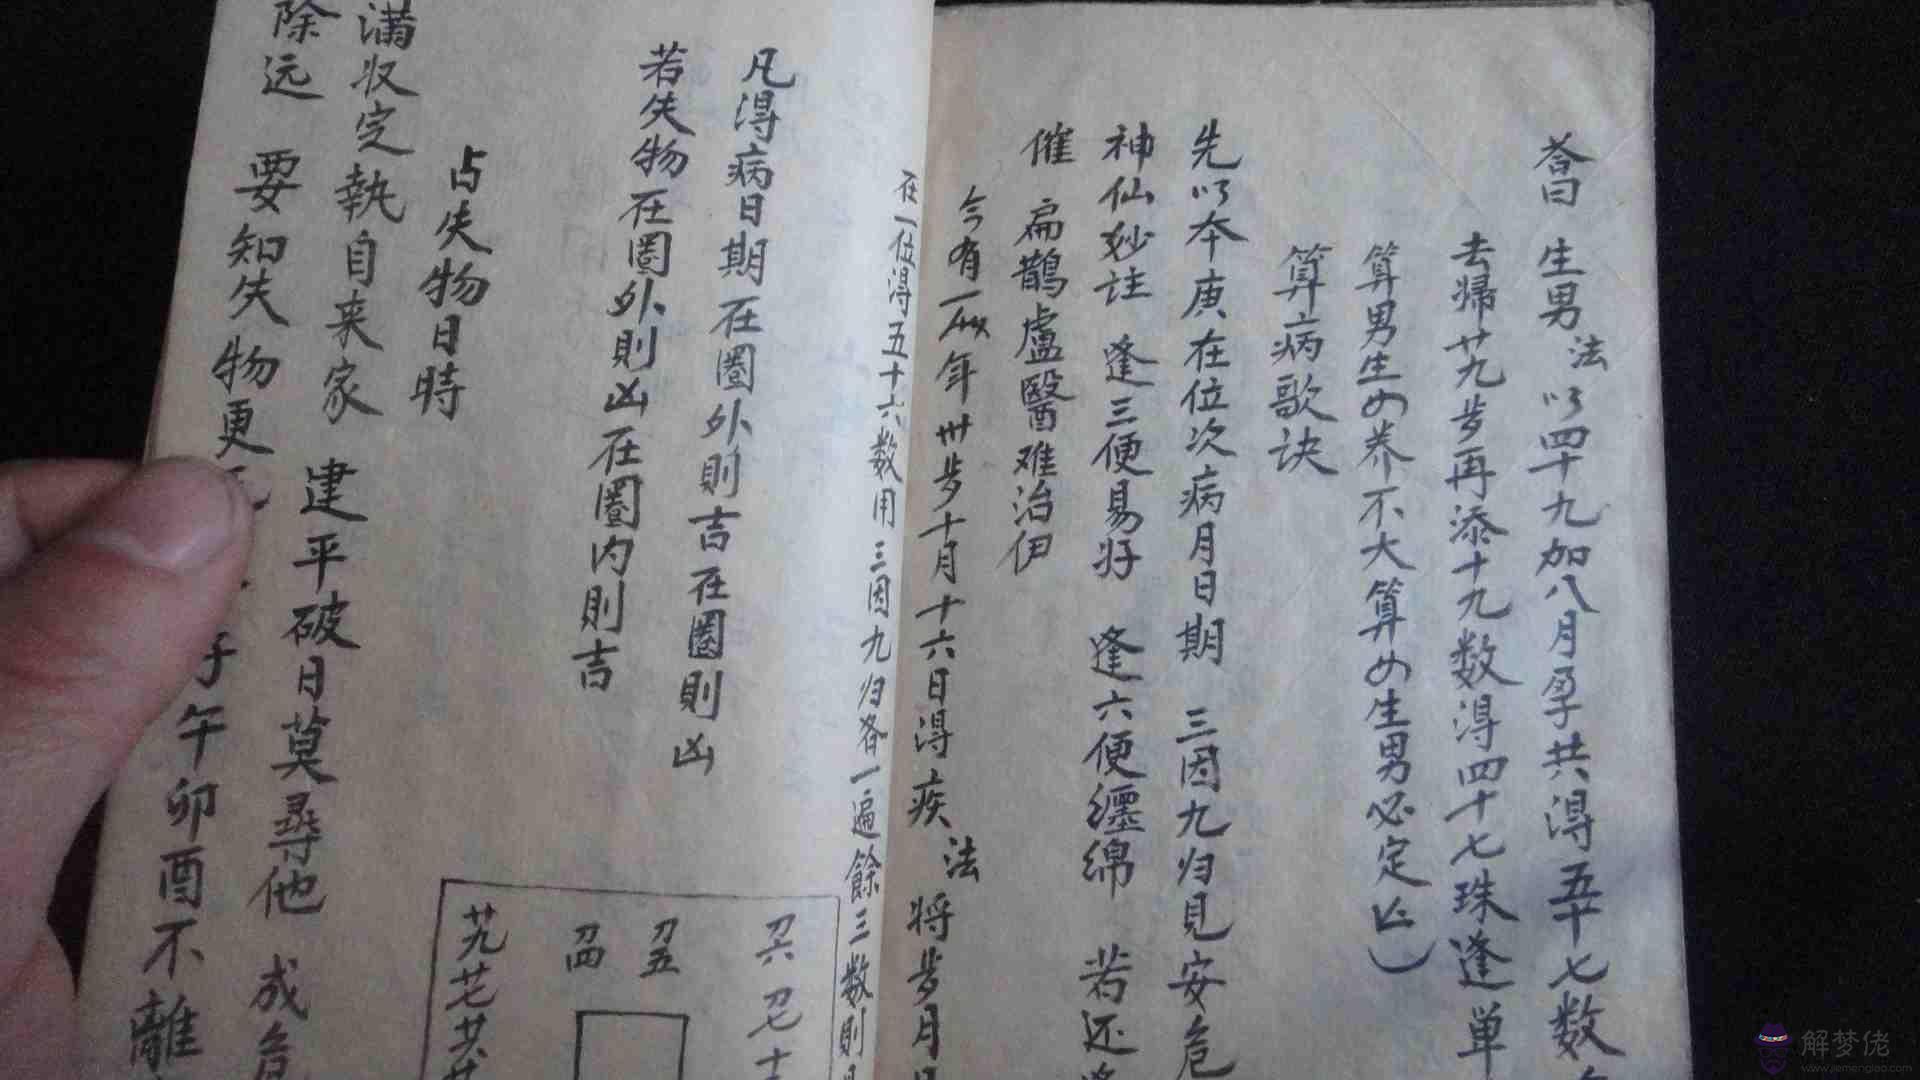 荅曰 生男法 以四十九加八月孕共得五十七数
去歸廿九步再添十九数得四十七珠逢单
算男生女养不大算女生男必定
算病歌诀
先以本庚在位次病月日期 三因九归見安危
神仙妙註 逢三便易好 逢六便纒綿 若还逢
催 扁鵲盧醫难治伊
今有一人年卅步十月十六日得疾法将步月日
在一位得五十六数用三因九归各一遍餘三数則
凡得病日期在圈外則吉在圈則凶
若失物在圈外則凶在圈内則吉
刀六 刀七 十
刀五
刀四
廿九 廿七 廿八
占失物日時
满收定執自来家 建平破日莫尋他 成危
除远 要知失物更 子午卯酉不離
解梦佬
www.jiemenglao.com